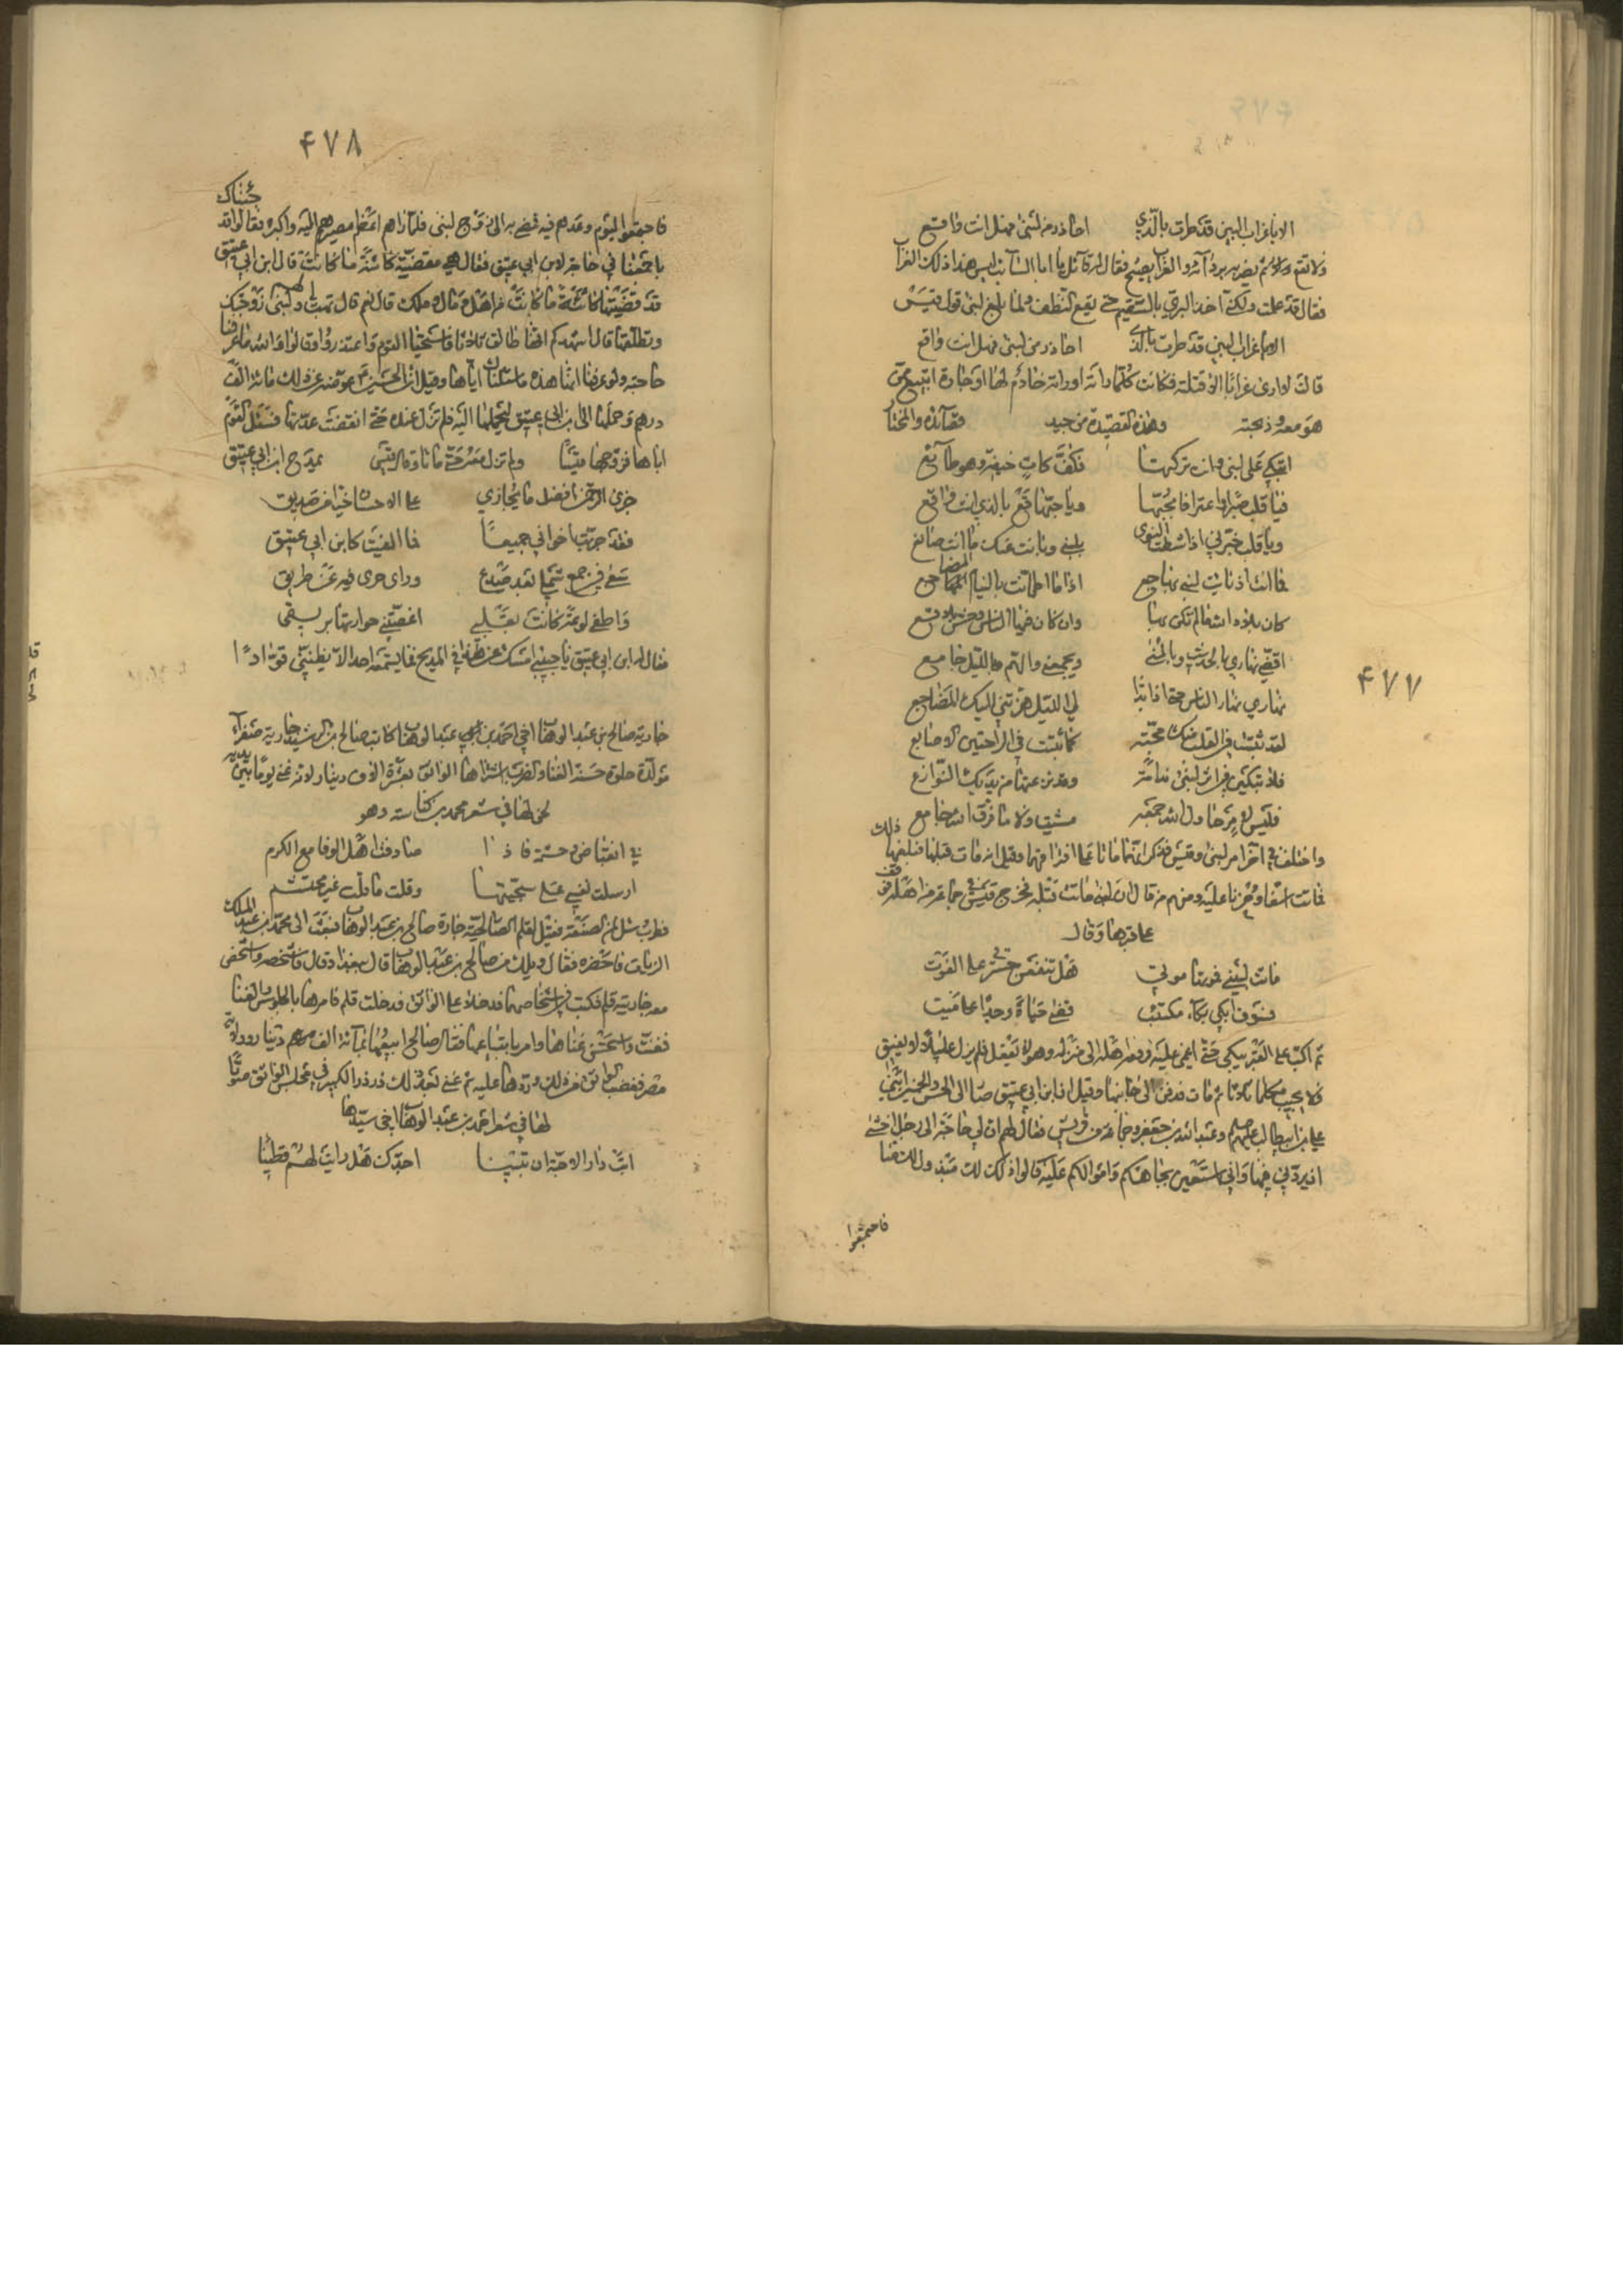 ۴۷۷
الا يا غراب البين قد طرت بالذي احاذر من لبنى فهل انت واقع
فقال لقد علمت ولكنه اخذ البريّ بالسقيم حتى يقع ولما بلغ لبنى قول قيس
الا يا غراب البين قد طرت بالذي احاذر من لبنى فهل انت واقع
قالت لا ارى غرابا الا قتلته فكانت كلما راته او راته خادم لها او جارة ابتيع ممن
هو معه وذبحته وهذه القصيدة من جيد قصائده والمختار
اتبكي على لبنى وانت تركتها فكنت كات حتفه وهو طائع
فيا قلب صبرا واعترافا بحبها ويا حبها قع بالذي انت واقع
ويا قلب خبرني اذا شطت النوى بلبنى وبانت عنك ما انت صانع
فما انت اذ بانت لبيني بهاجع اذا ما اطمأنت بالنيام المضاجع
كان بلاد الله ما لم تكن بها وان كان فيها الناس وحش بلاقع
اقضي نهاري بالحديث وبالمنى ويجمعني والهم بالليل جامع
نهاري نهار الناس حتى اذا بدا لي الليل هزتني اليك المضاجع
لقد ثبتت في القلب منك محبة كما ثبتت في الراحتين الاصابع
فلا تبكين في اثر لبنى ندامة وقد نزعتها من يديك النوازع
فليس لامر حاول الله جمعه مشت ولا ما فرق الله جامع
واختلف في آخر امر لبنى وقيس فذكر انهما ماتا على افتراقهما وقيل انه مات قبلها فبلغها ذلك
فماتت اسفا وحزنا عليه ومنهم من قال ان لبنى ماتت قبله فخرج قيس في جماعة من اهله فوقف
على قبرها وقال
ماتت لبيني فموتها موتي هل تنفعن حسرتي على الفوت
فسوف ابكي بكاء مكتئب قضى حياة وجدا على ميت
ثم اكب على القبر يبكي حتى اغمي عليه فرفعه اهله الى منزله وهو لا يعقل فلم يزل عليلا لا يفيق
ولا يجيب مكلما ثلاثا ثم مات فدفن الى جانبها وقيل ان ابن ابي عتيق صار الى الحسن والحسين ابني
علي بن ابيطالب عليهم وعبد الله بن جعفر وجماعة من قريش فقال لهم ان لي حاجة الى رجل اخشى
ان يردني فيها واني استعين بجاهكم واموالكم عليه قالوا ذلك لك مبذول منا
فاجتمعوا
۴۷۸
فاجتمعوا ليوم وعدهم فيه فمضى بهم الى زوج لبنى فلما راهم اعظم مصيرهم اليه واكبره فقالوا قد جئناك
باجمعنا في حاجة لابن ابي عتيق فقال هي مقضية كائنة ما كانت قال ابن ابي عتيق
قد قضيتها كائنة ما كانت من اهل او مال او ملك قال نعم قال تهب لي لبنى زوجتك
وتطلقها قال اشهدكم انها طالق ثلاثا فاستحيا القوم واعتذروا وقالوا والله ما عرفنا
حاجته ولو عرفنا انها هذه ما سئلناك اياها وقيل ان الحسين عوضه عن ذلك مائة الف
درهم وحملها الى ابن ابي عتيق فلم تزل عنده حتى انقضت عدتها فسئل القوم
اباها فزوجها قيسا ولم تزل معه حتى ماتا وقال قيس يمدح ابن ابي عتيق
جزى الرحمن افضل ما يجازي على الاحسان خيرا من صديق
فقد جربت اخواني جميعا فما الفيت كابن ابي عتيق
سعى في جمع شملي بعد صدع وراى جرى فيه عن طريق
واطفى لوعة كانت بقلبي اغصتني حرارتها بريقي
فقال له ابن ابي عتيق يا حبيبي امسك عن هذا المديح فما يسمعه احد الا يظنني قوادًا
جارية صالح بن عبد الوهاب اخي احمد بن عبد الوهاب كاتب صالح بن الرشيد جارية صفراء
مولدة حلوة حسنة الغنا والضرب اشتراها الواثق بعشرة الاف دينار لانه غنى يوما بين يديه
لحن لها في شعر محمد بن كناسه وهو
في انقباض وحشمة فاذا صادفت اهل الوفا مع الكرم
ارسلت نفسي على سجيتها وقلت ما قلت غير محتشم
فطرب وسئل لمن الصنعة فقيل لقلم الصالحية جارية صالح بن عبد الوهاب فبعث الى محمد بن عبد الملك
الزيات فاحضره فقال ويلك من صالح بن عبد الوهاب قال بغداد قال فاشخصه واشخص
معه جاريته قلم فكتب في اشخاصهما فدخلا على الواثق فدخلت قلم فامرها بالجلوس والغناء
فغنت واستحسن غناها وامر بابتياعها فقال صالح ابيعها بمائة الف دينار وولاية
مصر فغضب الواثق من ذلك وردها عليه ثم غنى بعد ذلك زرزر الكبير في مجلس الواثق صوتا
لها في شعر احمد بن عبد الوهاب اخي سيدها
ابت دار الاحبة ان تبينا اجدك هل رايت لهم قطينا